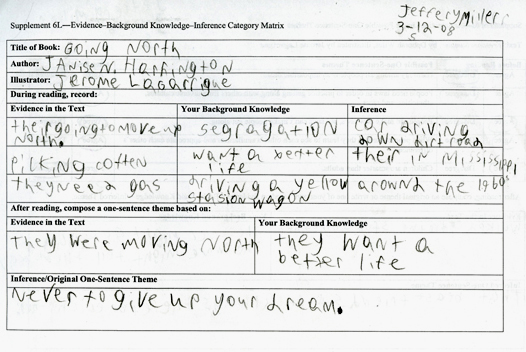 Jeffery Miller
3-12-08
5
Supplement 6L—Evidence–Background Knowledge–Inference Category Matrix
Title of Book: GOING North
Author: JANise N. HARRINGTON
Illustrator: Jerome LaGarrigue
During reading, record:
Evidence in the Text Your Background Knowledge Inference
their going to move up North. segragation car driving down dirt road
picking cotten want a better life their in Mississippi
they need gas driving a yellow stasion wagon arownd the 1960s
After reading, compose a one-sentence theme based on:
Evidence in the Text Your Background Knowledge
they were moving North they want a better life
Inference/Original One-Sentence Theme
Never to give up your dream.